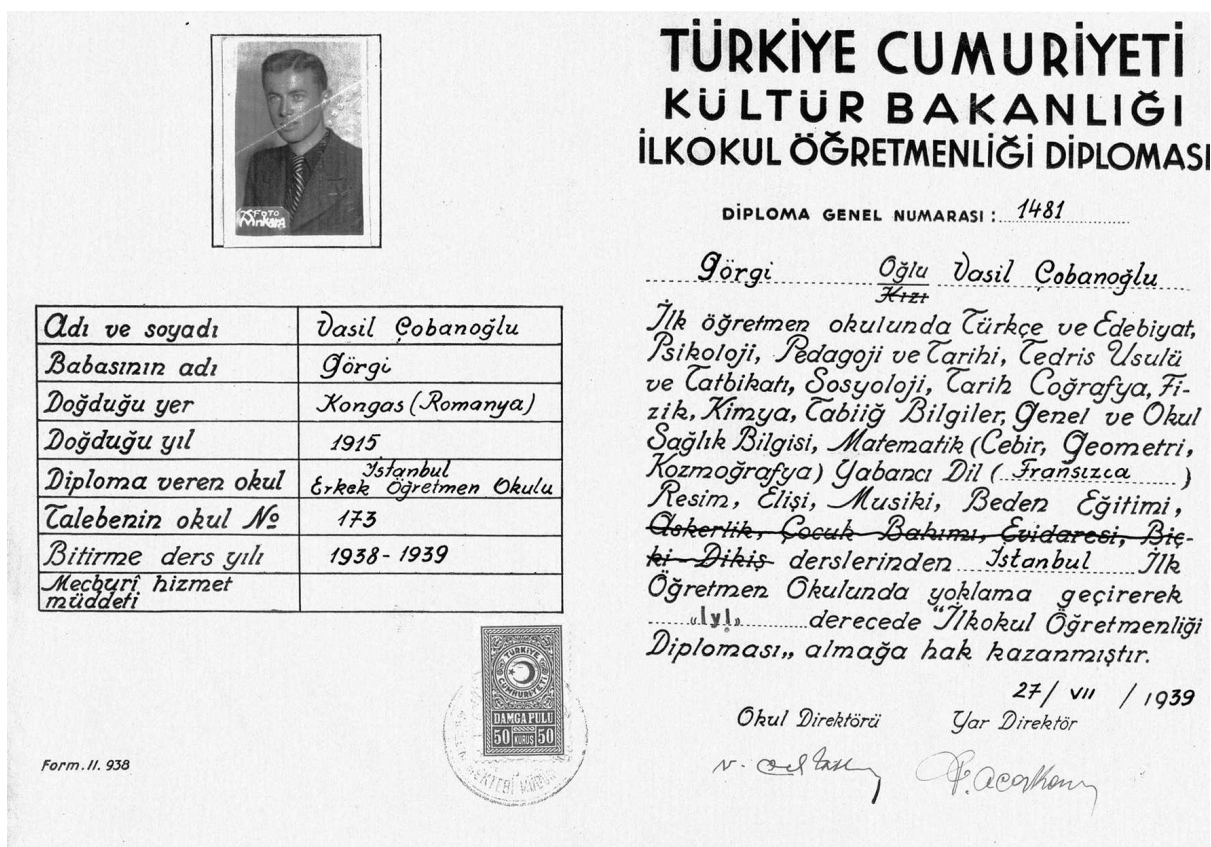 FOTO
Ankara
Adı ve soyadı Vasil Çobanoğlu
Babasının adı Görgi
Doğduğu yer Kongas (Romanya)
Doğduğu yıl 1915
Diploma veren okul İstanbul
Erkek Öğretmen Okulu
Talebenin okul № 173
Bitirme ders yılı 1938-1939
Mecburî hizmet
müddeti
TÜRKİYE
CUMHURİYETİ
DAMGA PULU
50 KURUŞ 50
Form. II. 938
TÜRKİYE CUMURİYETİ
KÜLTÜR BAKANLIĞI
İLKOKUL ÖĞRETMENLİĞİ DİPLOMASI
DİPLOMA GENEL NUMARASI : 1481
Görgi Oğlu Vasil Çobanoğlu
Kızı
İlk öğretmen okulunda Türkçe ve Edebiyat,
Psikoloji, Pedagoji ve Tarihi, Tedris Usulü
ve Tatbikatı, Sosyoloji, Tarih Coğrafya, Fi-
zik, Kimya, Tabiiğ Bilgiler, Genel ve Okul
Sağlık Bilgisi, Matematik (Cebir, Geometri,
Kozmoğrafya) Yabancı Dil ( Fransızca )
Resim, Elişi, Musiki, Beden Eğitimi,
Askerlik, Çocuk Bakımı, Evidaresi, Biç-
ki - Dikiş derslerinden İstanbul İlk
Öğretmen Okulunda yoklama geçirerek
„İyi„ derecede “İlkokul Öğretmenliği
Diploması„ almağa hak kazanmıştır.
27/ VII / 1939
Okul Direktörü Yar Direktör